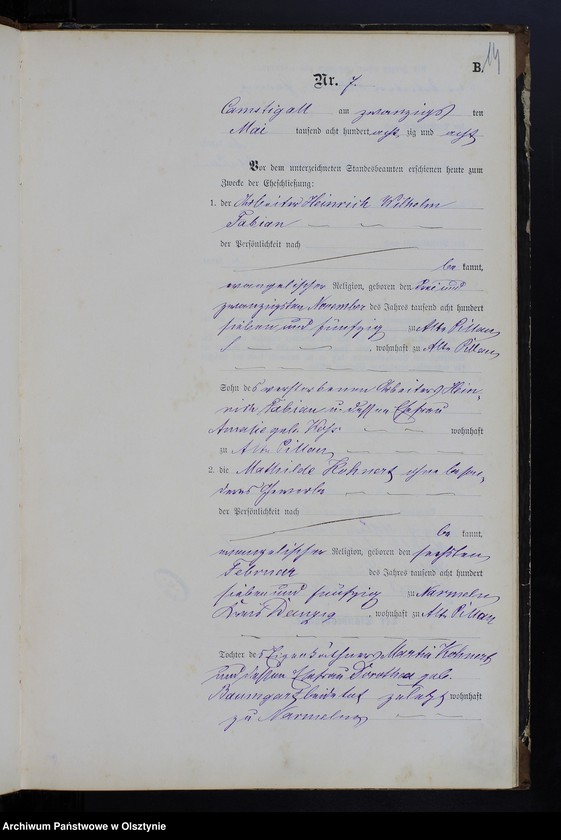 B. 14
Nr. 7.
Camstigall am zwanzigs ten
Mai tausend acht hundert acht zig und acht
Vor dem unterzeichneten Standesbeamten erschienen heute zum
Zwecke der Eheschließung:
1. der Arbeiter Heinrich Wilhelm
Fabian
der Persönlichkeit nach
be kannt,
evangelischer Religion, geboren den drei und
zwanzigsten November des Jahres tausend acht hundert
sieben und fünfzig zu Alt Pillau
, wohnhaft zu Alt Pillau
Sohn des verstorbenen Arbeiters Hein-
rich Fabian u. dessen Ehefrau
Amalie geb. wohnhaft
zu Alt Pillau
2. die Mathilde Hohnert ohne beson-
deres Gewerbe
der Persönlichkeit nach
be kannt,
evangelischer Religion, geboren den sechsten
Februar des Jahres tausend acht hundert
sieben und fünfzig zu Narmeln
Kreis Danzig, wohnhaft zu Alt Pillau
Tochter des Eigenkäthners Martin Hohnert
und dessen Ehefrau Dorothea geb.
Baumgart beide zuletzt wohnhaft
zu Narmeln
Archiwum Państwowe w Olsztynie